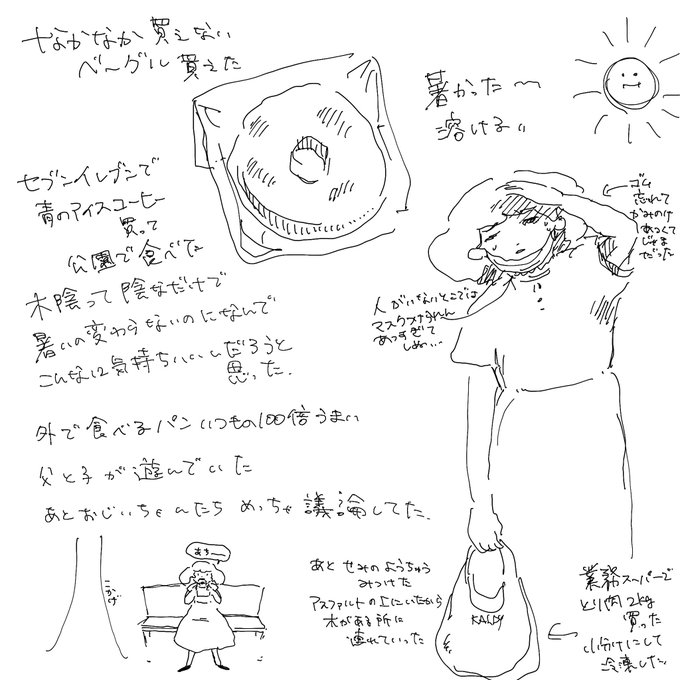 なかなか買えない
ベーグル買えた
暑かった〜
溶ける
セブンイレブンで
青のアイスコーヒー
買って
公園で食べた
木陰って陰なだけで
暑いの変わらないのになんで
こんなに気持ちいいんだろうと
思った.
外で食べるパンいつもの100倍うまい
父と子が遊んでいた
あとおじいちゃんたちめっちゃ議論してた.
ゴム
忘れて
かみのけ
あつくて
じゃま
だった
人がいないとこでは
マスクつけられん
あつすぎて
しぬ…
こかげ
あちー
あとせみのようちゅう
みつけた
アスファルトの上にいたから
木がある所に
連れていった
KALDY
業務スーパーで
とり肉2kg
買った
小分けにして
冷凍した